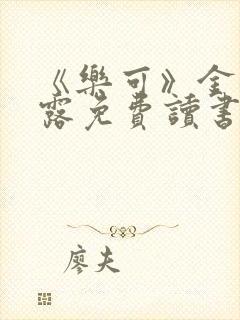 《樂可》全
露免費讀書
廖夫